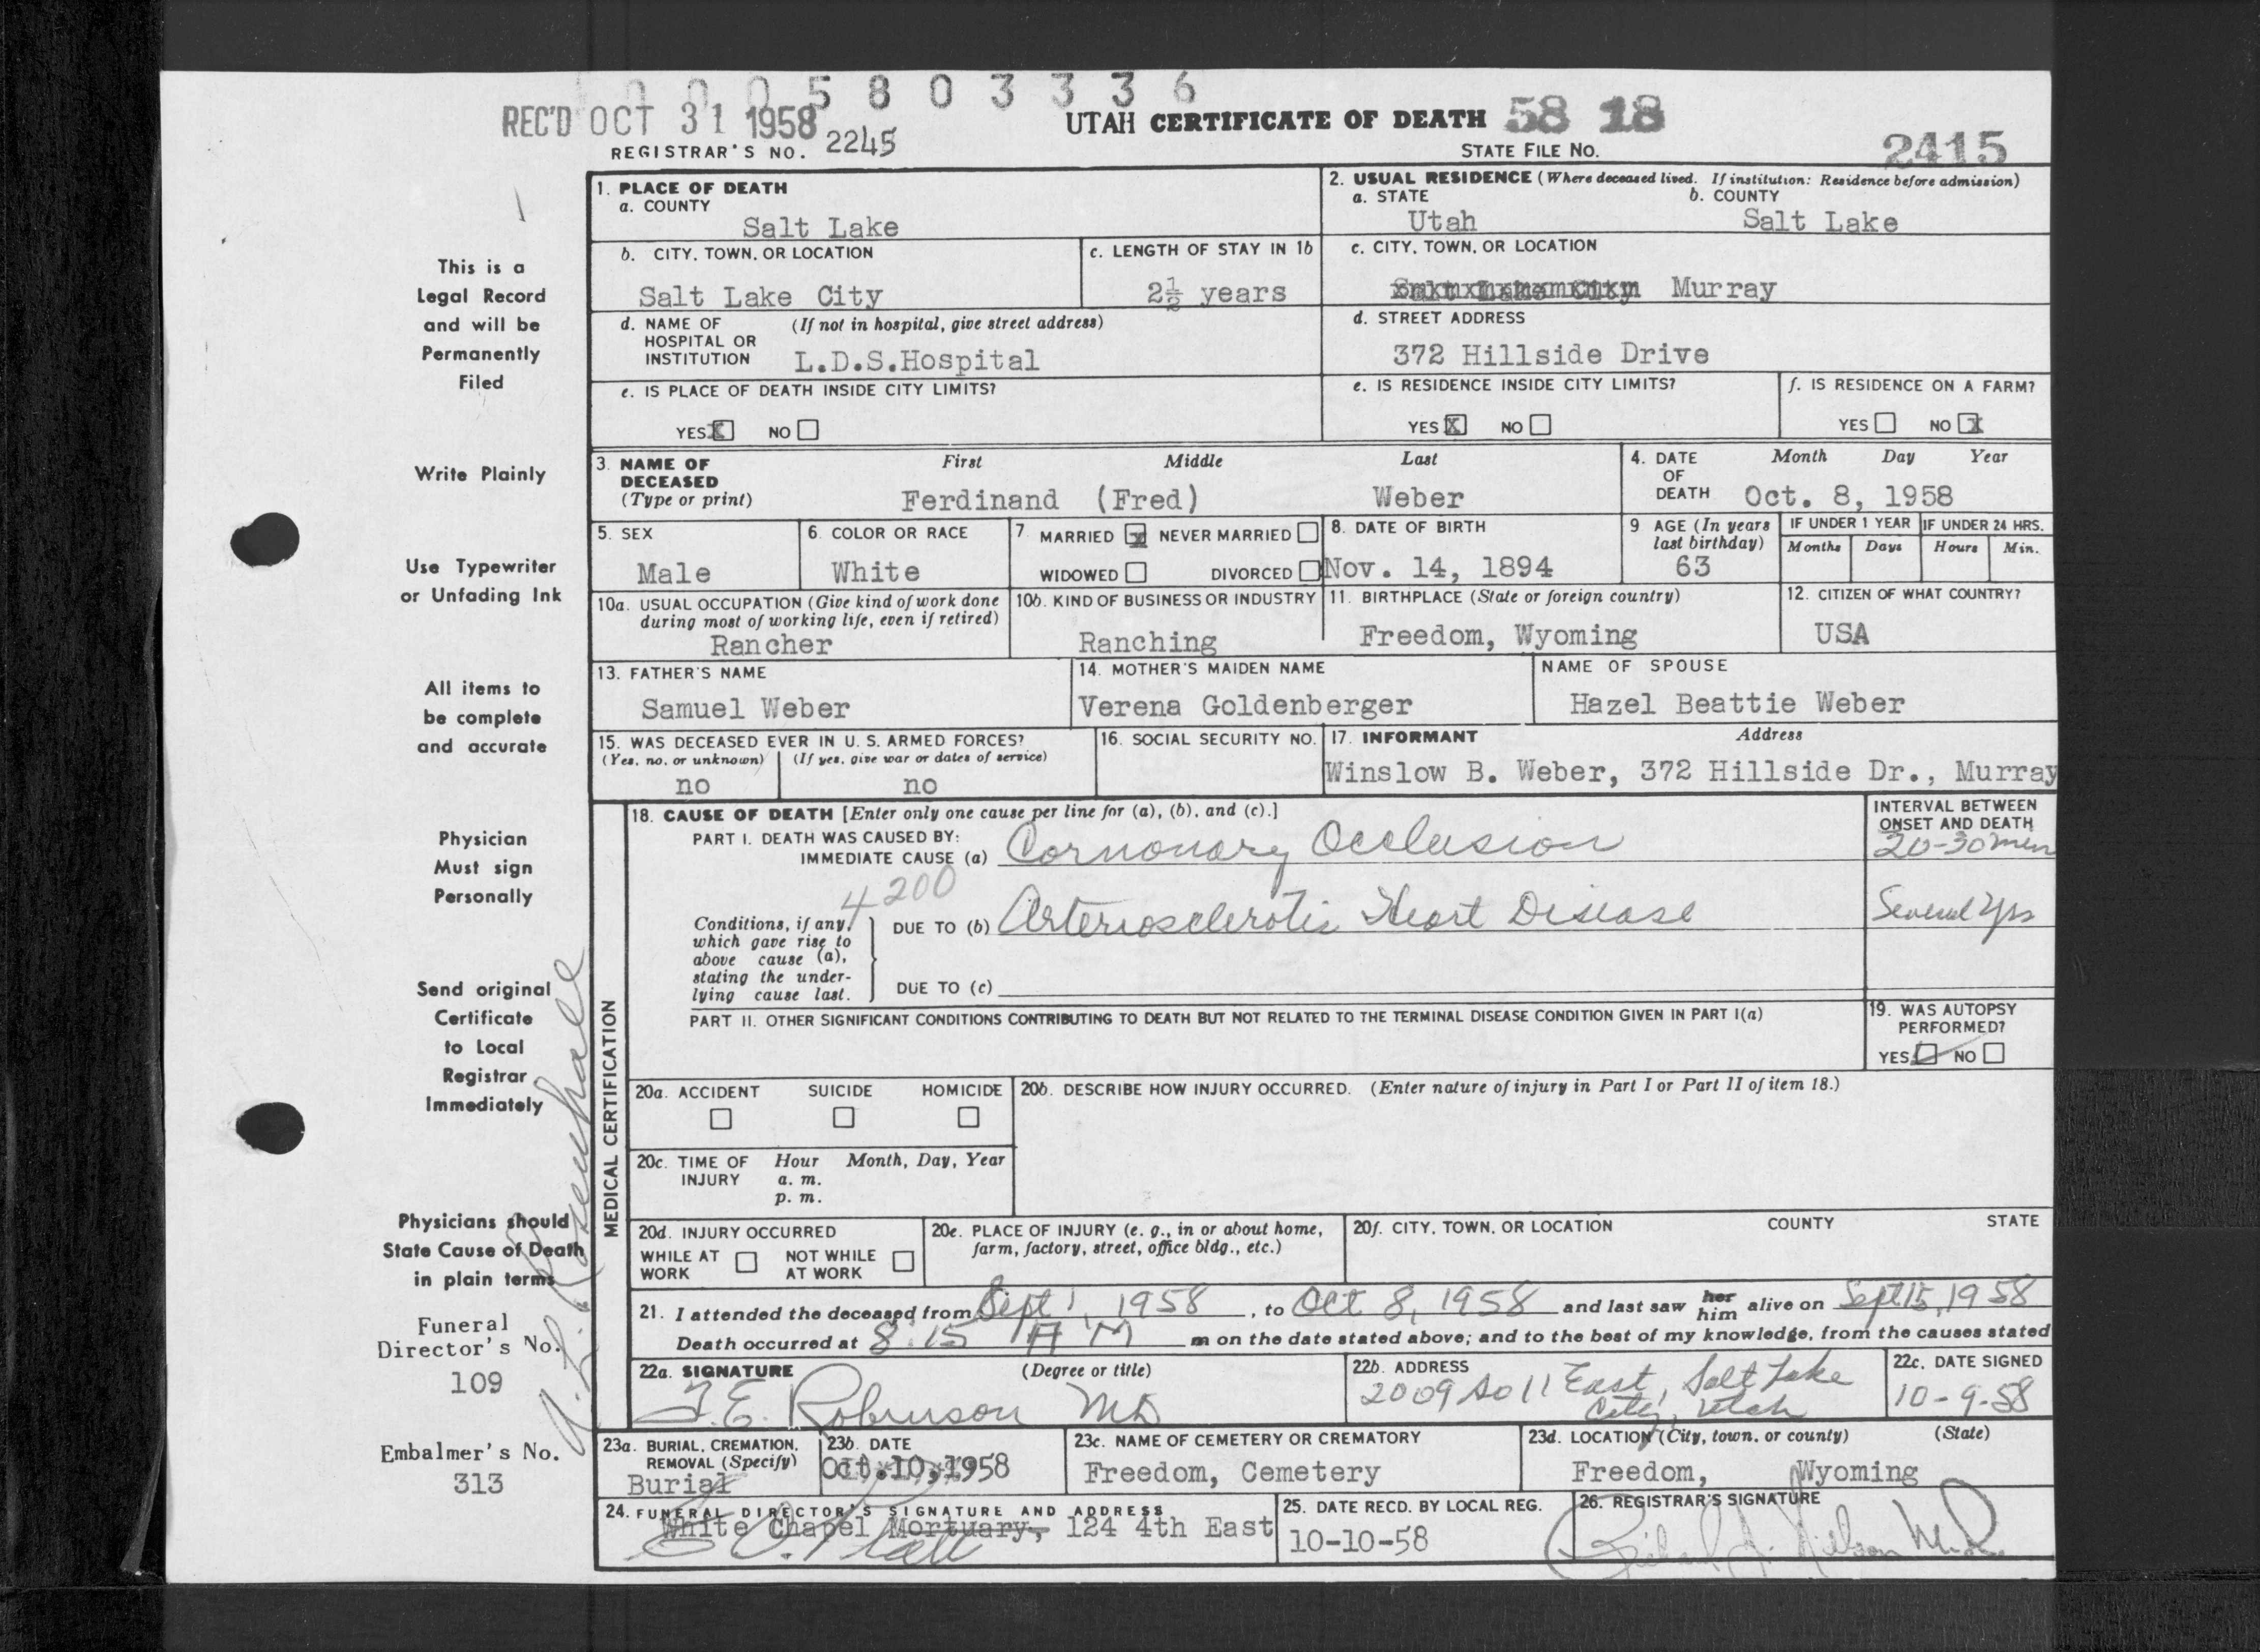 0 0 0 5 8 0 3 3 3 6
REC'D OCT 31 1958
REGISTRAR'S NO. 2245
UTAH CERTIFICATE OF DEATH 58 18
STATE FILE NO. 2415
This is a
Legal Record
and will be
Permanently
Filed
Write Plainly
Use Typewriter
or Unfading Ink
All items to
be complete
and accurate
Physician
Must sign
Personally
Send original
Certificate
to Local
Registrar
Immediately
Physicians should
State Cause of Death
in plain terms
Funeral
Director's No.
109
Embalmer's No.
313
1. PLACE OF DEATH
a. COUNTY
Salt Lake
2. USUAL RESIDENCE (Where deceased lived. If institution: Residence before admission)
a. STATE b. COUNTY
Utah Salt Lake
b. CITY, TOWN, OR LOCATION
Salt Lake City
c. LENGTH OF STAY IN 1b
2½ years
c. CITY, TOWN, OR LOCATION
Murray
d. NAME OF (If not in hospital, give street address)
HOSPITAL OR
INSTITUTION L.D.S.Hospital
d. STREET ADDRESS
372 Hillside Drive
e. IS PLACE OF DEATH INSIDE CITY LIMITS?
YES X NO
e. IS RESIDENCE INSIDE CITY LIMITS?
YES X NO
f. IS RESIDENCE ON A FARM?
YES NO X
3. NAME OF DECEASED (Type or print)
First Middle Last
Ferdinand (Fred) Weber
4. DATE OF DEATH
Month Day Year
Oct. 8, 1958
5. SEX
Male
6. COLOR OR RACE
White
7 MARRIED x NEVER MARRIED
WIDOWED DIVORCED
8. DATE OF BIRTH
Nov. 14, 1894
9 AGE (In years last birthday)
63
IF UNDER 1 YEAR IF UNDER 24 HRS.
Months Days Hours Min.
10a. USUAL OCCUPATION (Give kind of work done
during most of working life, even if retired)
Rancher
10b. KIND OF BUSINESS OR INDUSTRY
Ranching
11. BIRTHPLACE (State or foreign country)
Freedom, Wyoming
12. CITIZEN OF WHAT COUNTRY?
USA
13. FATHER'S NAME
Samuel Weber
14. MOTHER'S MAIDEN NAME
Verena Goldenberger
NAME OF SPOUSE
Hazel Beattie Weber
15. WAS DECEASED EVER IN U. S. ARMED FORCES?
(Yes, no, or unknown) (If yes, give war or dates of service)
no no
16. SOCIAL SECURITY NO.
17. INFORMANT Address
Winslow B. Weber, 372 Hillside Dr., Murray
MEDICAL CERTIFICATION
18. CAUSE OF DEATH [Enter only one cause per line for (a), (b), and (c).]
PART I. DEATH WAS CAUSED BY:
IMMEDIATE CAUSE (a) Cornonary Occlusion
INTERVAL BETWEEN
ONSET AND DEATH
20-30 min
4200
Conditions, if any,
which gave rise to
above cause (a),
stating the under-
lying cause last.
DUE TO (b) Arteriosclerotic Heart Disease
Several yrs
DUE TO (c)
PART II. OTHER SIGNIFICANT CONDITIONS CONTRIBUTING TO DEATH BUT NOT RELATED TO THE TERMINAL DISEASE CONDITION GIVEN IN PART I(a)
19. WAS AUTOPSY
PERFORMED?
YES NO
20a. ACCIDENT SUICIDE HOMICIDE
20b. DESCRIBE HOW INJURY OCCURRED. (Enter nature of injury in Part I or Part II of item 18.)
20c. TIME OF INJURY
Hour Month, Day, Year
a. m.
p. m.
20d. INJURY OCCURRED
WHILE AT WORK NOT WHILE AT WORK
20e. PLACE OF INJURY (e. g., in or about home,
farm, factory, street, office bldg., etc.)
20f. CITY, TOWN, OR LOCATION COUNTY STATE
21. I attended the deceased from Sept 1, 1958, to Oct 8, 1958 and last saw her him alive on Sept 15, 1958
Death occurred at 8:15 A M m on the date stated above; and to the best of my knowledge, from the causes stated
22a. SIGNATURE (Degree or title)
F.E. Robinson MD
22b. ADDRESS
2009 So 11 East, Salt Lake
City, Utah
22c. DATE SIGNED
10-9-58
23a. BURIAL, CREMATION,
REMOVAL (Specify)
Burial
23b. DATE
Oct.10,1958
23c. NAME OF CEMETERY OR CREMATORY
Freedom, Cemetery
23d. LOCATION (City, town, or county) (State)
Freedom, Wyoming
24. FUNERAL DIRECTOR'S SIGNATURE AND ADDRESS
White Chapel Mortuary, 124 4th East
25. DATE RECD. BY LOCAL REG.
10-10-58
26. REGISTRAR'S SIGNATURE